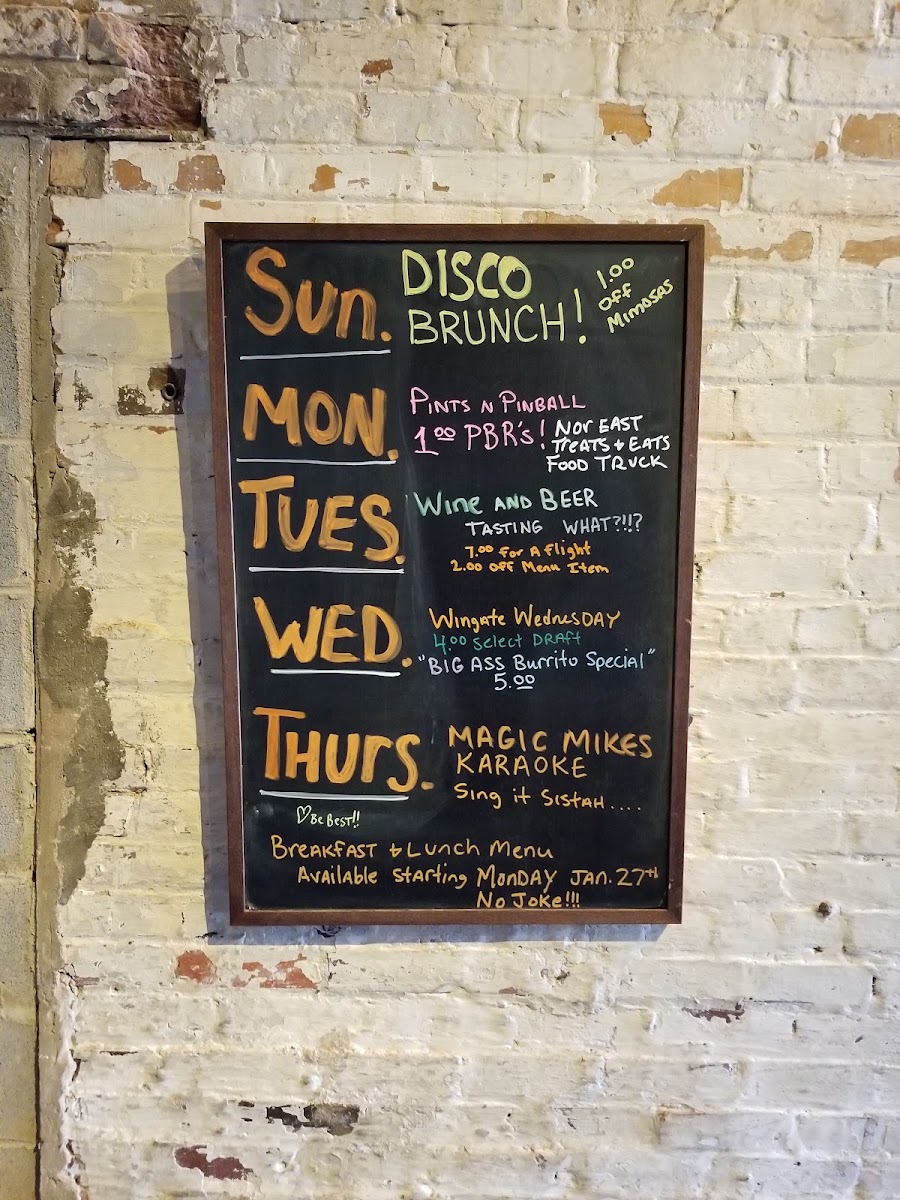 Sun.
DISCO
BRUNCH!
1.00
OFF
Mimosas
MON.
PINTS N PINBALL
1.00 PBR's!
NOR EAST
TreATS + EATS
FOOD TRUCK
TUES.
Wine AND BEER
TASTING WHAT?!!?
7.00 for A flight
2.00 OFF Menu Item
WED.
Wingate WednesDAY
4.00 Select DRAft
"BIG ASS Burrito Special"
5.00
THurs.
MAGIC MIKES
KARAOKE
Sing it SISTAH....
♡ Be BesT!!
BreAKFAST + Lunch Menu
Available Starting MONDAY JAN. 27th
No Joke!!!